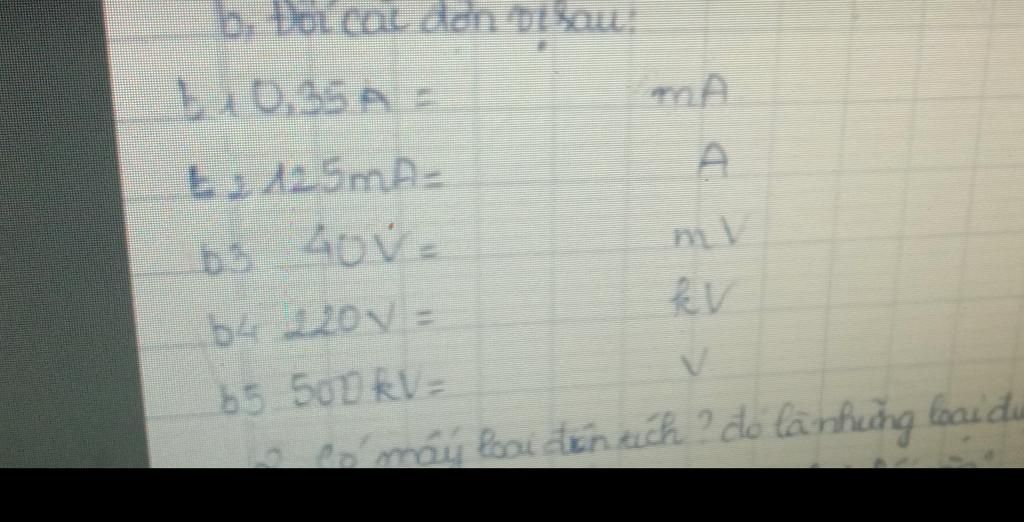 b, Đổi các đơn vị sau:
b1 0,35A = mA
b2 125mA = A
b3 40V = mV
b4 220V = kV
b5 500kV = V
có mấy loại điện tích? đó là những loại